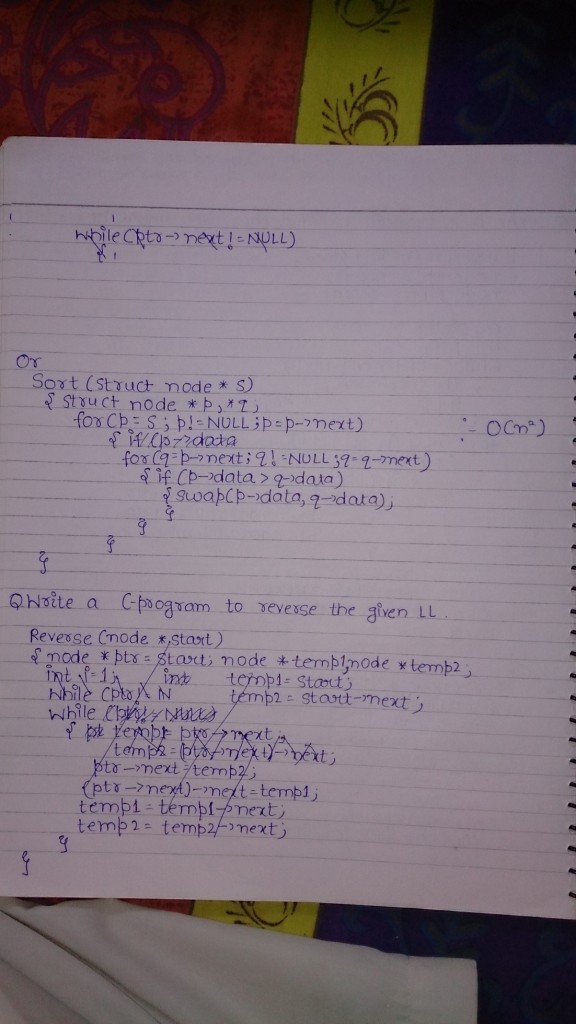 while (ptr->next != NULL)
{
Or
Sort (struct node * S)
{ struct node * p, * q,
for (p = S ; p != NULL ; p = p->next) :- O(n²)
{ if (p->data
for (q = p->next ; q != NULL ; q = q->next)
{ if (p->data > q->data)
{ swap(p->data, q->data);
}
}
}
}
Q Write a C-program to reverse the given LL.
Reverse (node *,start)
{ node * ptr = start; node * temp1, node * temp2;
int i=1; int temp1 = start;
while (ptr N temp2 = start->next;
while (ptr != NULL)
{ temp ptr->next;
temp2 = (ptr->next)->next;
ptr->next = temp2;
(ptr->next)->next = temp1;
temp1 = temp1->next;
temp2 = temp2->next;
}
}